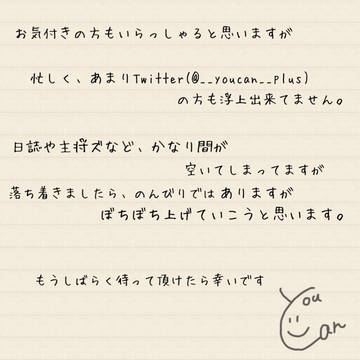 お気付きの方もいらっしゃると思いますが
忙しく、あまりTwitter(@__youcan__plus)
の方も浮上出来てません。
日誌や主将ズなど、かなり間が
空いてしまってますが
落ち着きましたら、のんびりではありますが
ぼちぼち上げていこうと思います。
もうしばらく待って頂けたら幸いです
You
Can